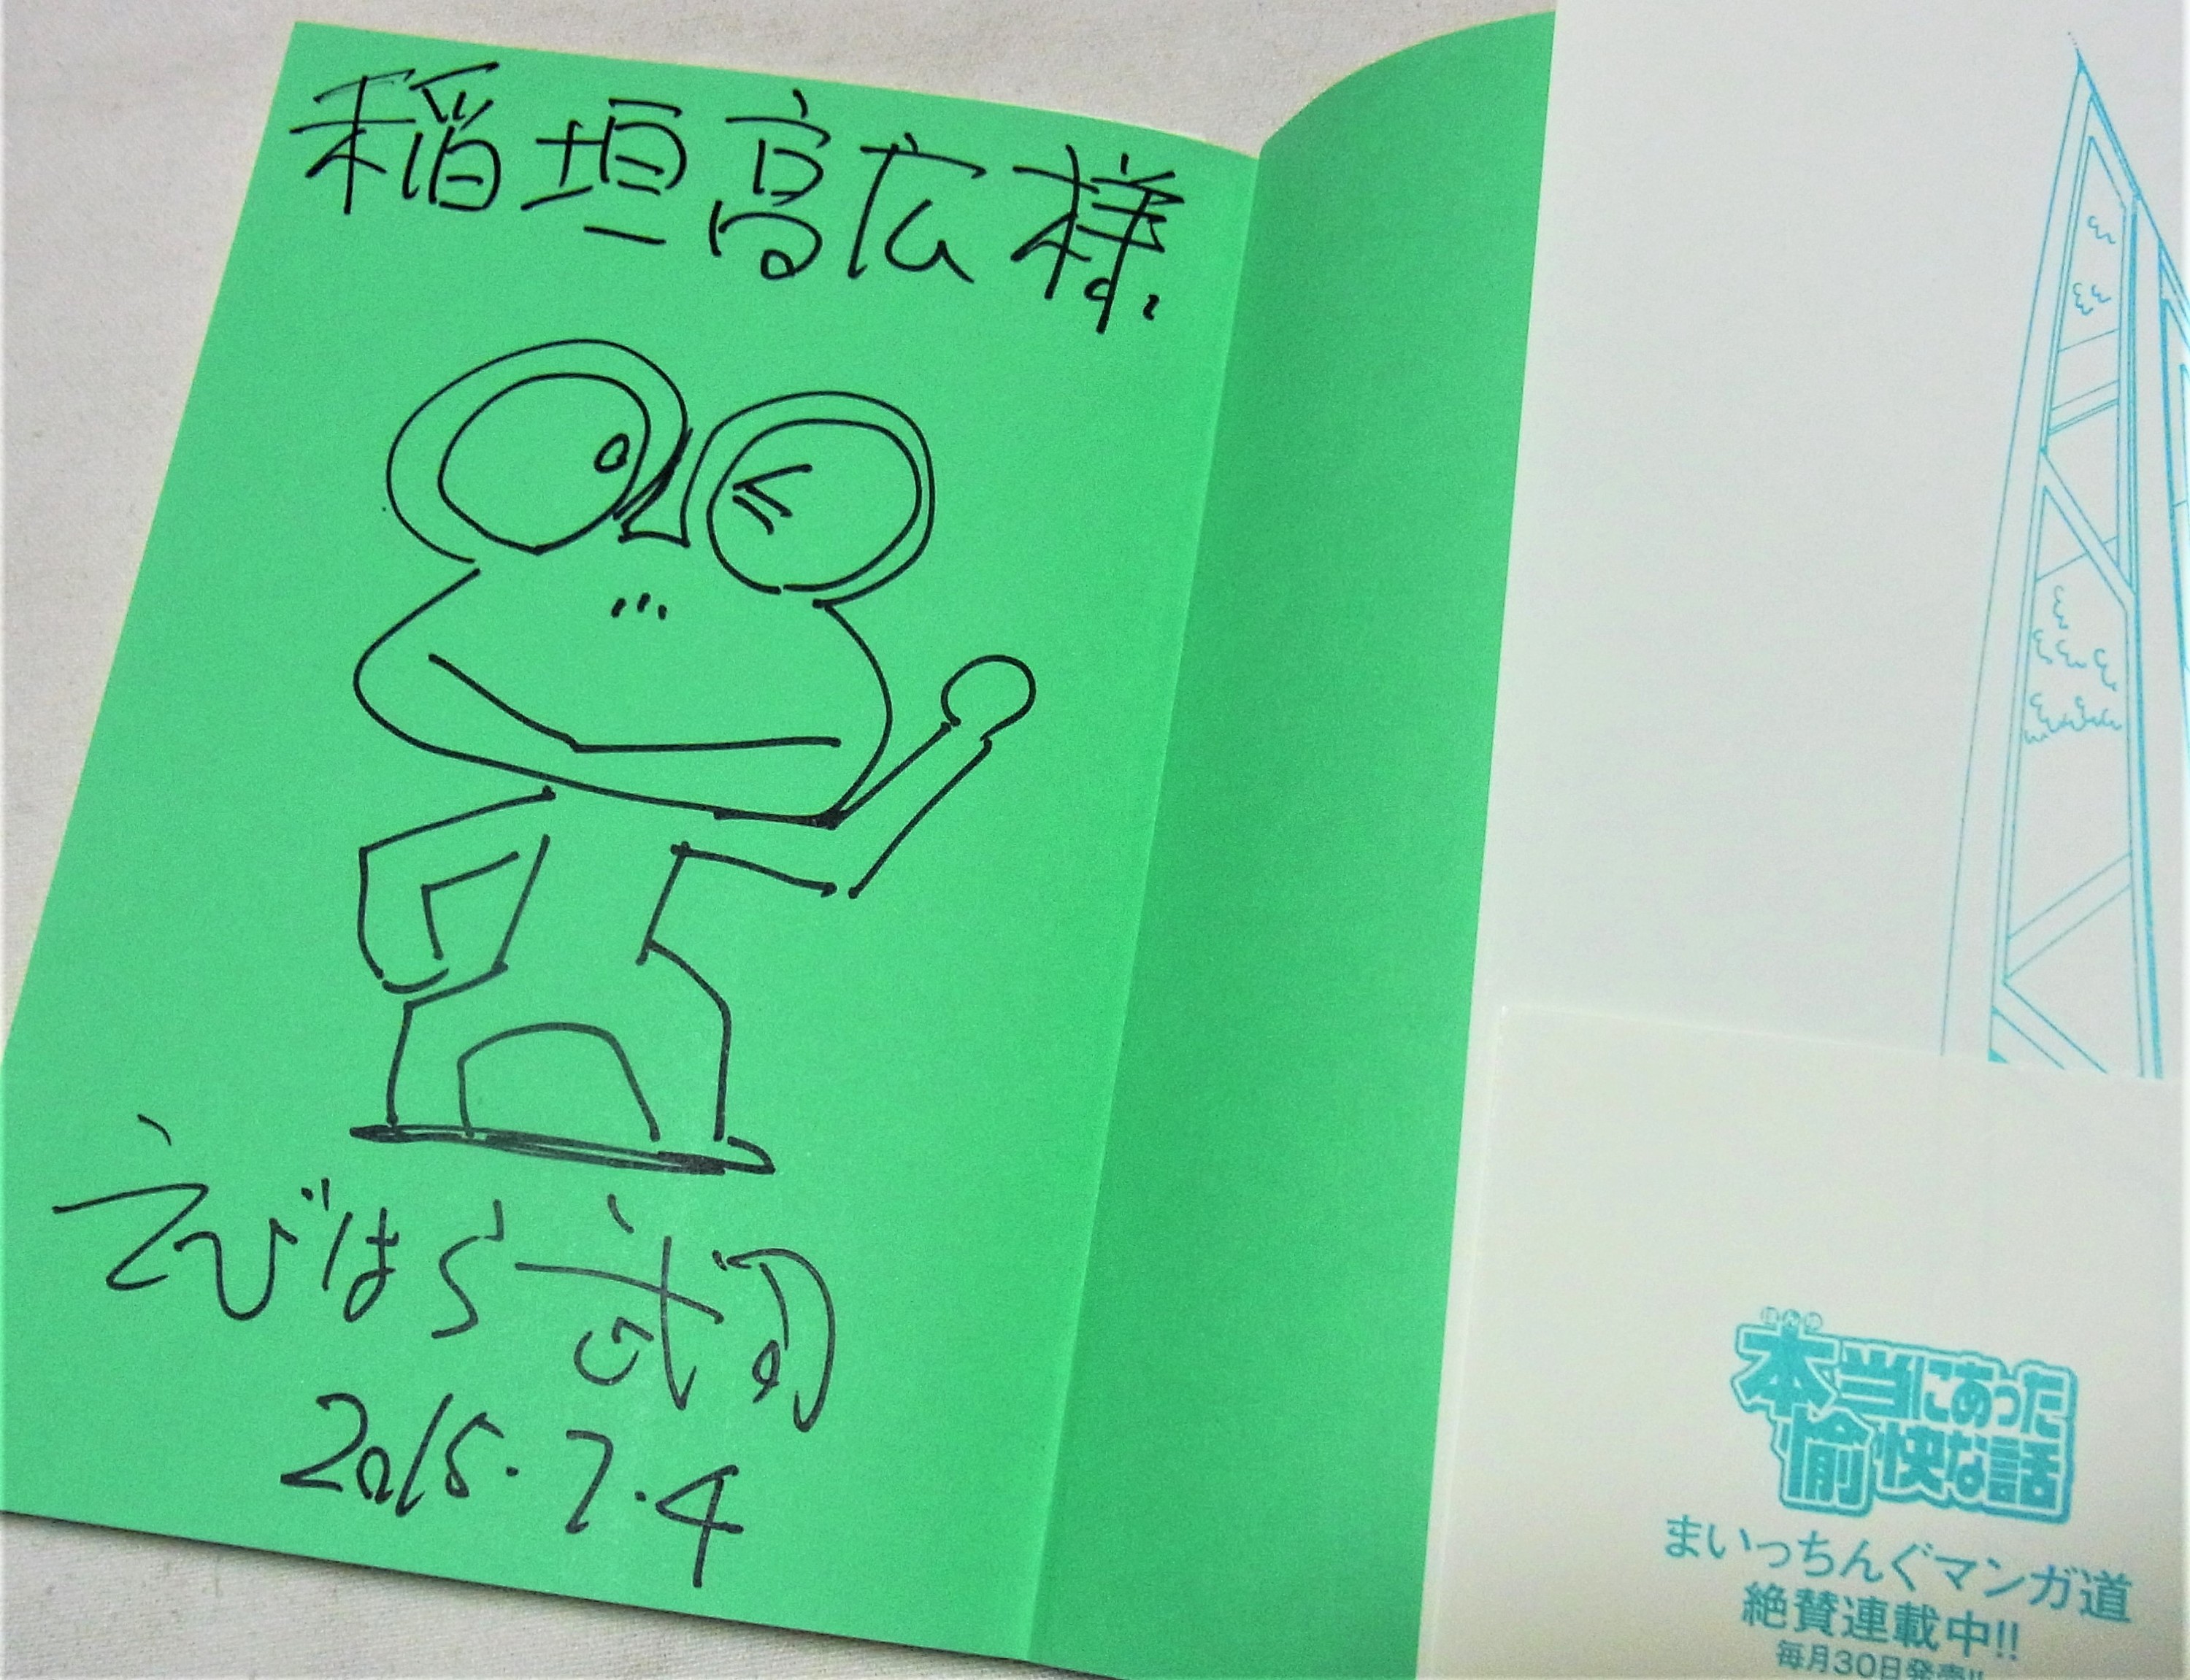 稲垣高広様
えびはら武司
2015.7.4
ほんゆ
本当にあった
愉快な話
まいっちんぐマンガ道
絶賛連載中!!
毎月30日発売!!